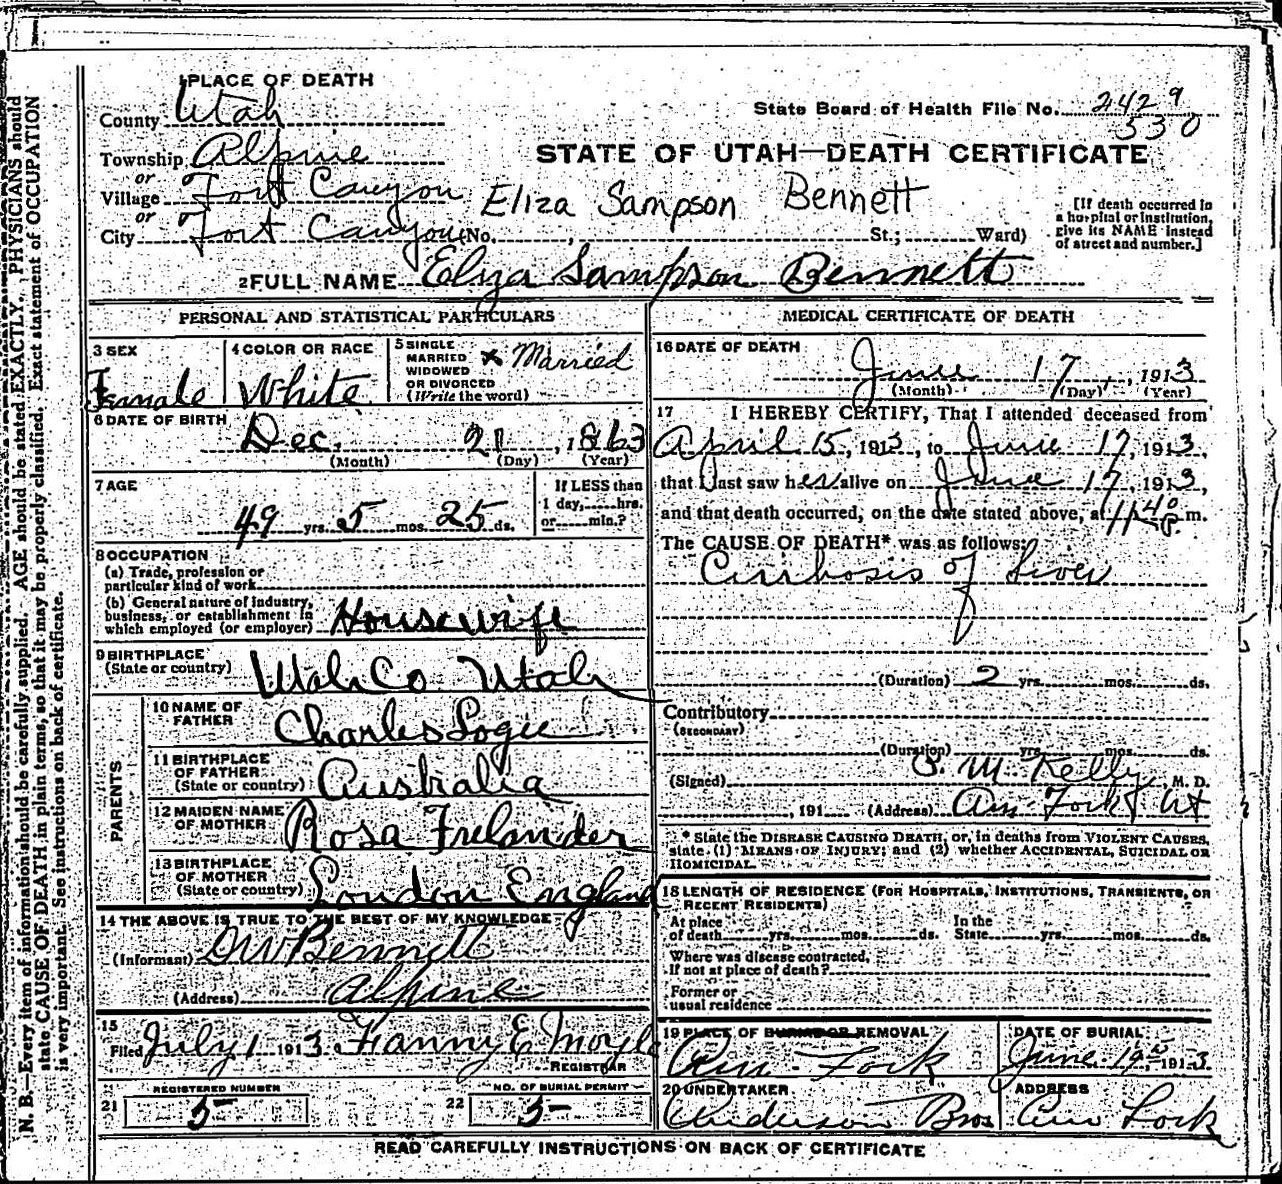 1 PLACE OF DEATH
County Utah
State Board of Health File No. 2429
530
Township Alpine
STATE OF UTAH—DEATH CERTIFICATE
or
Village Fort Canyon
Eliza Sampson Bennett
or
City Fort Canyon (No. , St.; Ward)
[If death occurred in
a hospital or institution,
give its NAME instead
of street and number.]
2 FULL NAME Eliza Sampson Bennett
PERSONAL AND STATISTICAL PARTICULARS
3 SEX
Female
4 COLOR OR RACE
White
5 SINGLE
MARRIED
WIDOWED
OR DIVORCED
(Write the word)
x Married
6 DATE OF BIRTH
Dec. 21, 1863
(Month) (Day) (Year)
7 AGE
49 yrs. 5 mos. 25 ds.
If LESS than
1 day, hrs.
or min.?
8 OCCUPATION
(a) Trade, profession or
particular kind of work
(b) General nature of industry,
business, or establishment in
which employed (or employer) Housewife
9 BIRTHPLACE
(State or country) Utah Co Utah
PARENTS
10 NAME OF
FATHER Charles Logie
11 BIRTHPLACE
OF FATHER
(State or country) Australia
12 MAIDEN NAME
OF MOTHER Rosa Frelander
13 BIRTHPLACE
OF MOTHER
(State or country) London England
14 THE ABOVE IS TRUE TO THE BEST OF MY KNOWLEDGE
(Informant) Bennett
(Address) Alpine
15
Filed July 1 1913 Fanny E Moyle
REGISTRAR
REGISTERED NUMBER
21 5
NO. OF BURIAL PERMIT
22 5
MEDICAL CERTIFICATE OF DEATH
16 DATE OF DEATH
June 17, 1913
(Month) (Day) (Year)
17 I HEREBY CERTIFY, That I attended deceased from
April 15, 1913, to June 17, 1913,
that I last saw her alive on June 17, 1913,
and that death occurred, on the date stated above, at 11 40 P. m.
The CAUSE OF DEATH* was as follows:
Cirrhosis of Liver
(Duration) 2 yrs. mos. ds.
Contributory
(SECONDARY)
(Duration) yrs. mos. ds.
(Signed) M. Kelly, M. D.
, 191 (Address) Am. Fork Ut
* State the DISEASE CAUSING DEATH, or, in deaths from VIOLENT CAUSES,
state (1) MEANS OF INJURY; and (2) whether ACCIDENTAL, SUICIDAL OR
HOMICIDAL.
18 LENGTH OF RESIDENCE (FOR HOSPITALS, INSTITUTIONS, TRANSIENTS, OR
RECENT RESIDENTS)
At place
of death yrs. mos. ds.
In the
State yrs. mos. ds.
Where was disease contracted,
If not at place of death?
Former or
usual residence
19 PLACE OF BURIAL OR REMOVAL
Am. Fork
DATE OF BURIAL
June 19, 1913
20 UNDERTAKER
Anderson Bros
ADDRESS
Am Fork
READ CAREFULLY INSTRUCTIONS ON BACK OF CERTIFICATE
N. B.—Every item of information should be carefully supplied. AGE should be stated EXACTLY. PHYSICIANS should
state CAUSE OF DEATH in plain terms, so that it may be properly classified. Exact statement of OCCUPATION
is very important. See instructions on back of certificate.